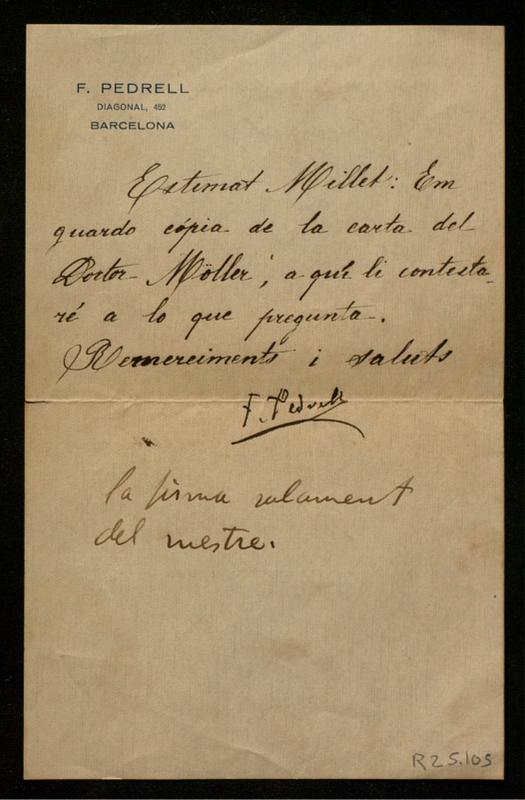 F. PEDRELL
DIAGONAL, 452
BARCELONA
Estimat Millet: Em
guardo cópia de la carta del
Doctor Möller, a qui li contesta-
ré a lo que pregunta.
Remerciments i saluts
F. Pedrell
la firma solament
del mestre.
R25.105